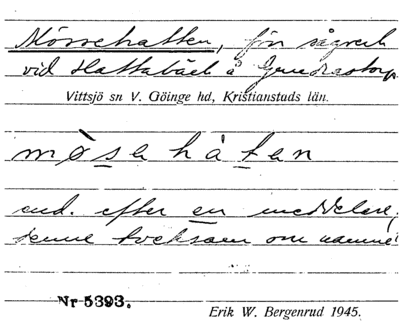 Mössehatten, förr sågverk
vid Hattabäck å Gundrastorp.
Vittsjö sn V. Göinge hd, Kristianstads län.
mǿsahåtan
end. efter en meddelare;
denne tveksam om namnet
Nr 5393.
Erik W. Bergenrud 1945.